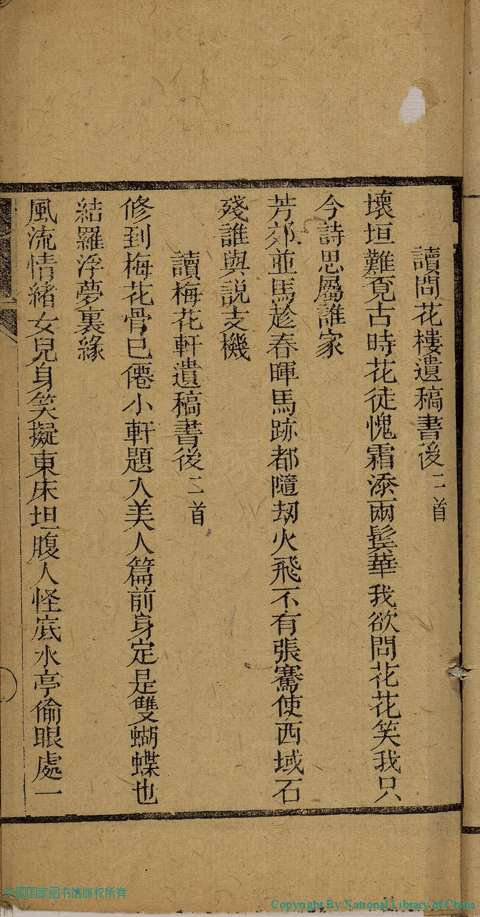 讀問花樓遺稿書後二首
壞垣難覓古時花徒愧霜添兩鬓華我欲問花花笑我只
今詩思屬誰家
芳郊並馬趁春暉馬跡都隨刼火飛不有張騫使西域石
殘誰與説支機
讀梅花軒遺稿書後二首
修到梅花骨已僊小軒題入美人篇前身定是雙蝴蝶也
結羅浮夢裏緣
風流情緒女兒身笑擬東床坦腹人怪底水亭偷眼處一
中国国家图书馆版权所有
Copyright By National Library of China